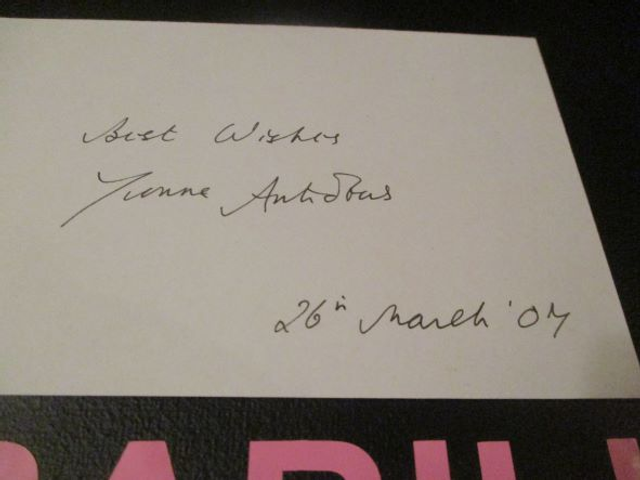 Best Wishes
Yvonne Antrobus
26th March '07